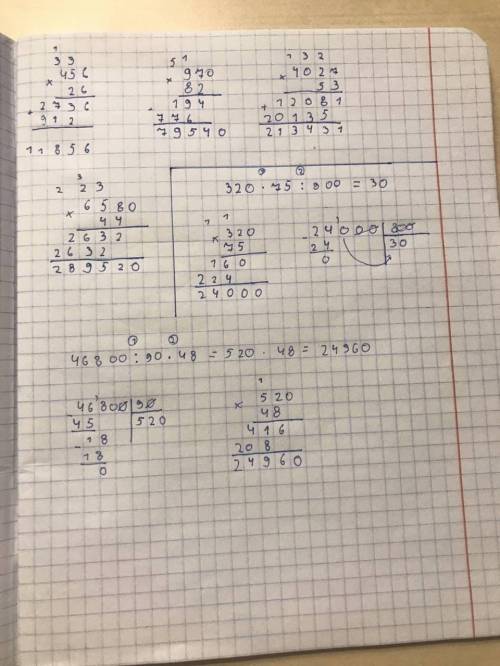 1
33
× 456
26
+ 2736
912
11856
5 1
× 970
82
194
776
79540
1 3 2
× 4027
53
+ 12081
20135
213431
3
2 2 3
× 6580
44
2632
2632
289520
① ②
320 · 75 : 800 = 30
1 1
× 320
75
160
224
24000
- 24000 | 800
24 | 30
0
① ②
46800 : 90 · 48 = 520 · 48 = 24960
- 46800 | 90
45 | 520
- 18
18
0
1
× 520
48
416
208
24960